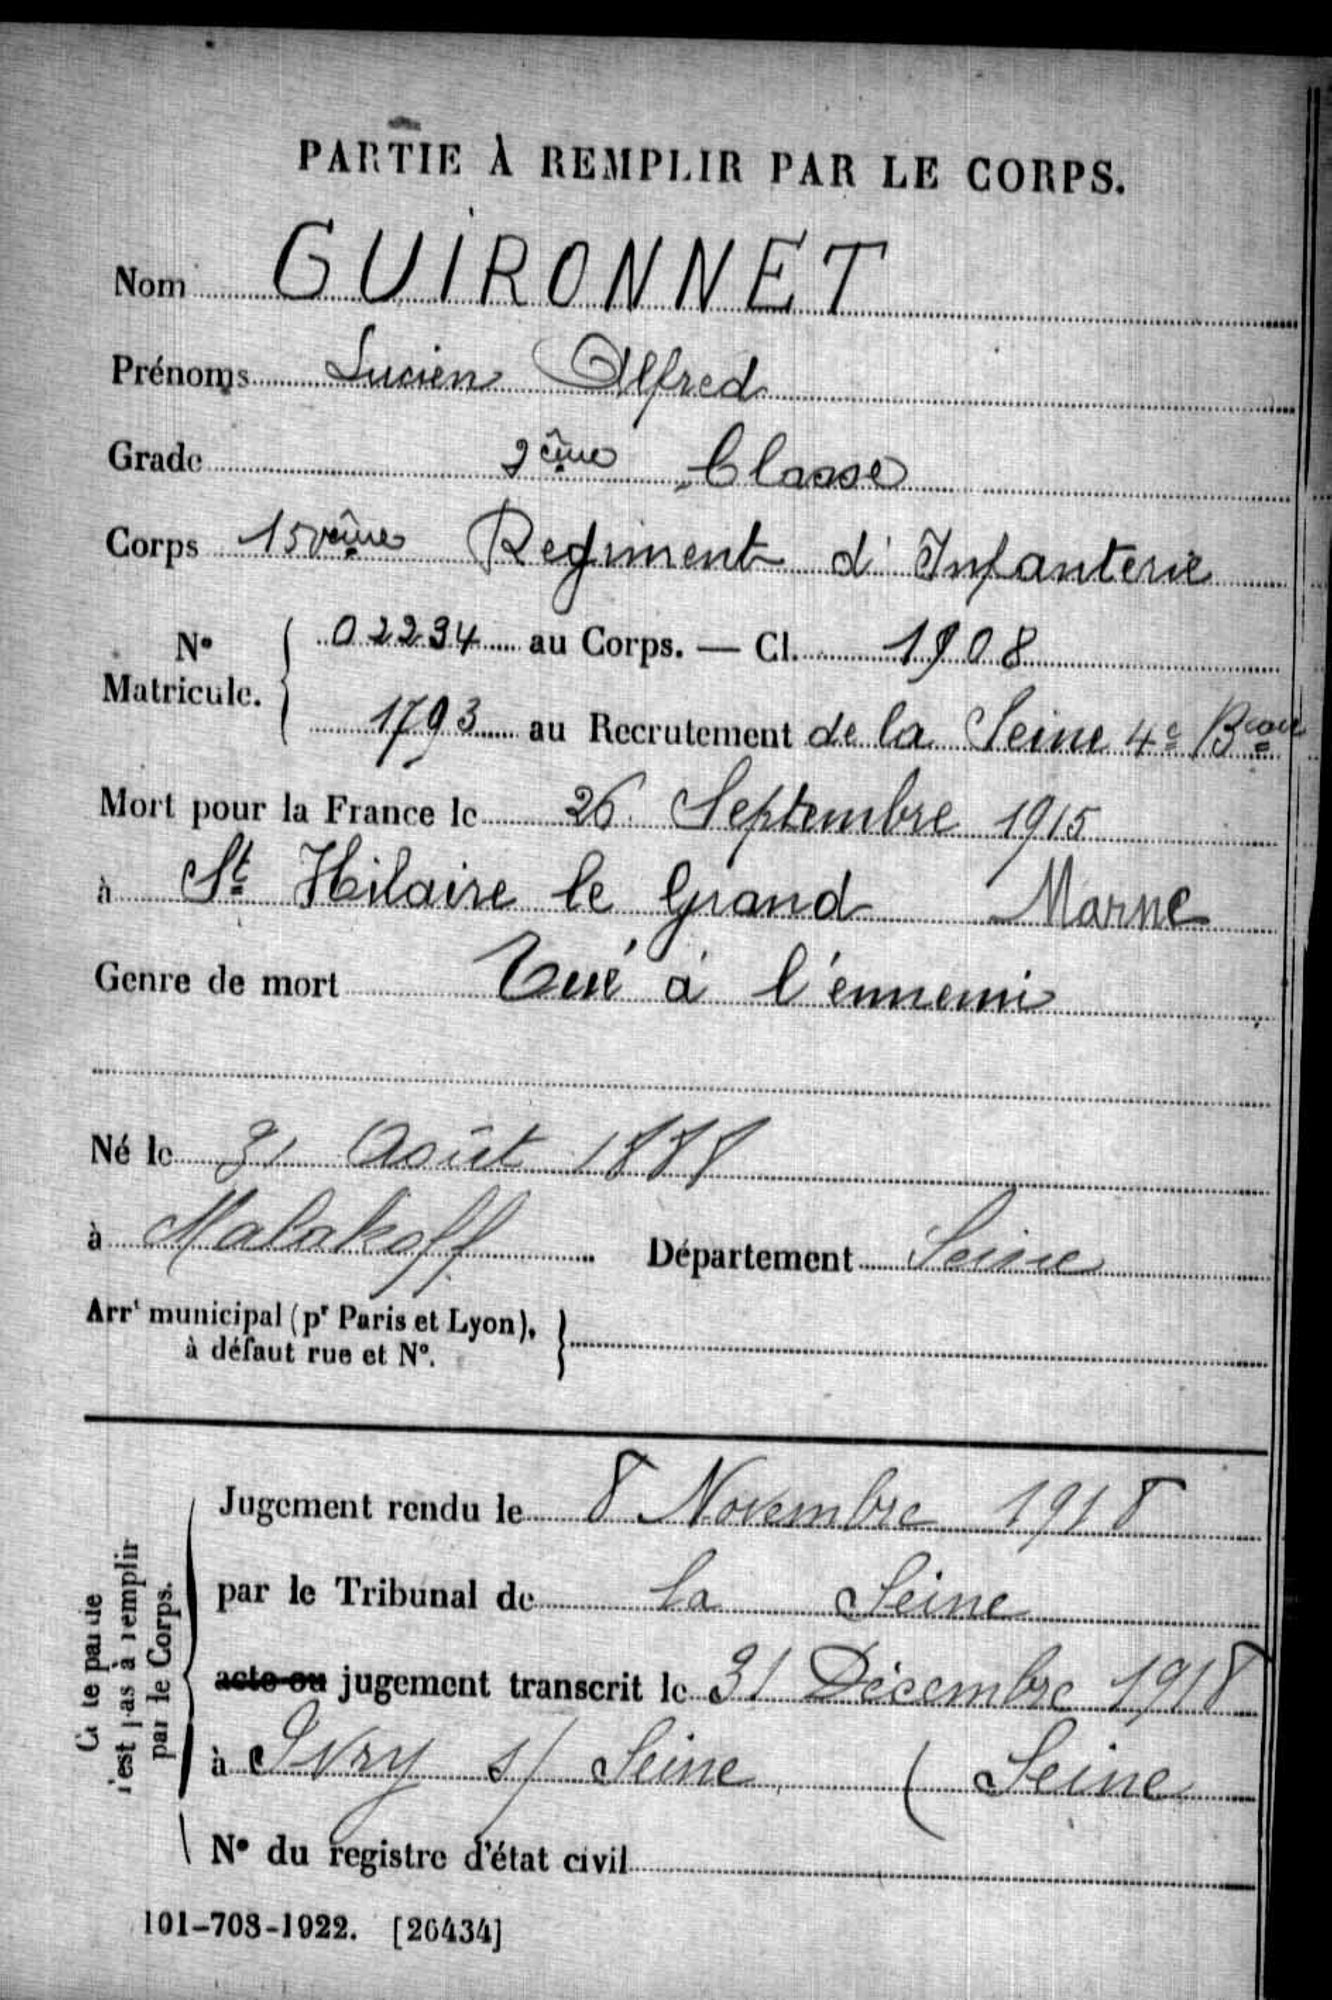 PARTIE À REMPLIR PAR LE CORPS.
Nom GUIRONNET
Prénoms Lucien Alfred
Grade 2ème Classe
Corps 150ème Regiment d'Infanterie
N° Matricule. { 02234 au Corps. — Cl. 1908
1793 au Recrutement de la Seine 4e Beau
Mort pour la France le 26 Septembre 1915
à St Hilaire le Grand Marne
Genre de mort Tué à l'ennemi
Né le 31 Août 1888
à Malakoff Département Seine
Arrt municipal (pr Paris et Lyon),
à défaut rue et N°. }
Jugement rendu le 8 Novembre 1918
par le Tribunal de la Seine
acte ou jugement transcrit le 31 Décembre 1918
à Ivry s/ Seine ( Seine
N° du registre d'état civil
Cette partie
n'est pas à remplir
par le Corps.
101-708-1922. [26434]